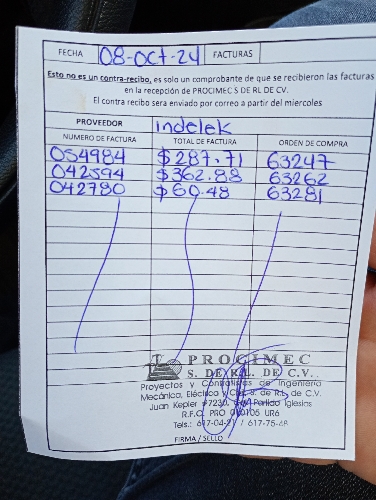 FECHA 08-OCT-24 FACTURAS
Esto no es un contra-recibo, es solo un comprobante de que se recibieron las facturas
en la recepción de PROCIMEC S DE RL DE CV.
El contra recibo sera enviado por correo a partir del miercoles
PROVEEDOR indelek
NUMERO DE FACTURA TOTAL DE FACTURA ORDEN DE COMPRA
054984 $287.71 63247
042594 $362.88 63262
042780 $60.48 63281
PROCIMEC
S. DE R.L. DE C.V.
Proyectos y Construcciones de Ingeniería
Mecánica, Eléctrica y Civil S. de R.L. de C.V.
Juan Kepler #7230, Partido Iglesias
R.F.C. PRO 010105 UR6
Tels.: 617-04-21 / 617-75-48
FIRMA / SELLO